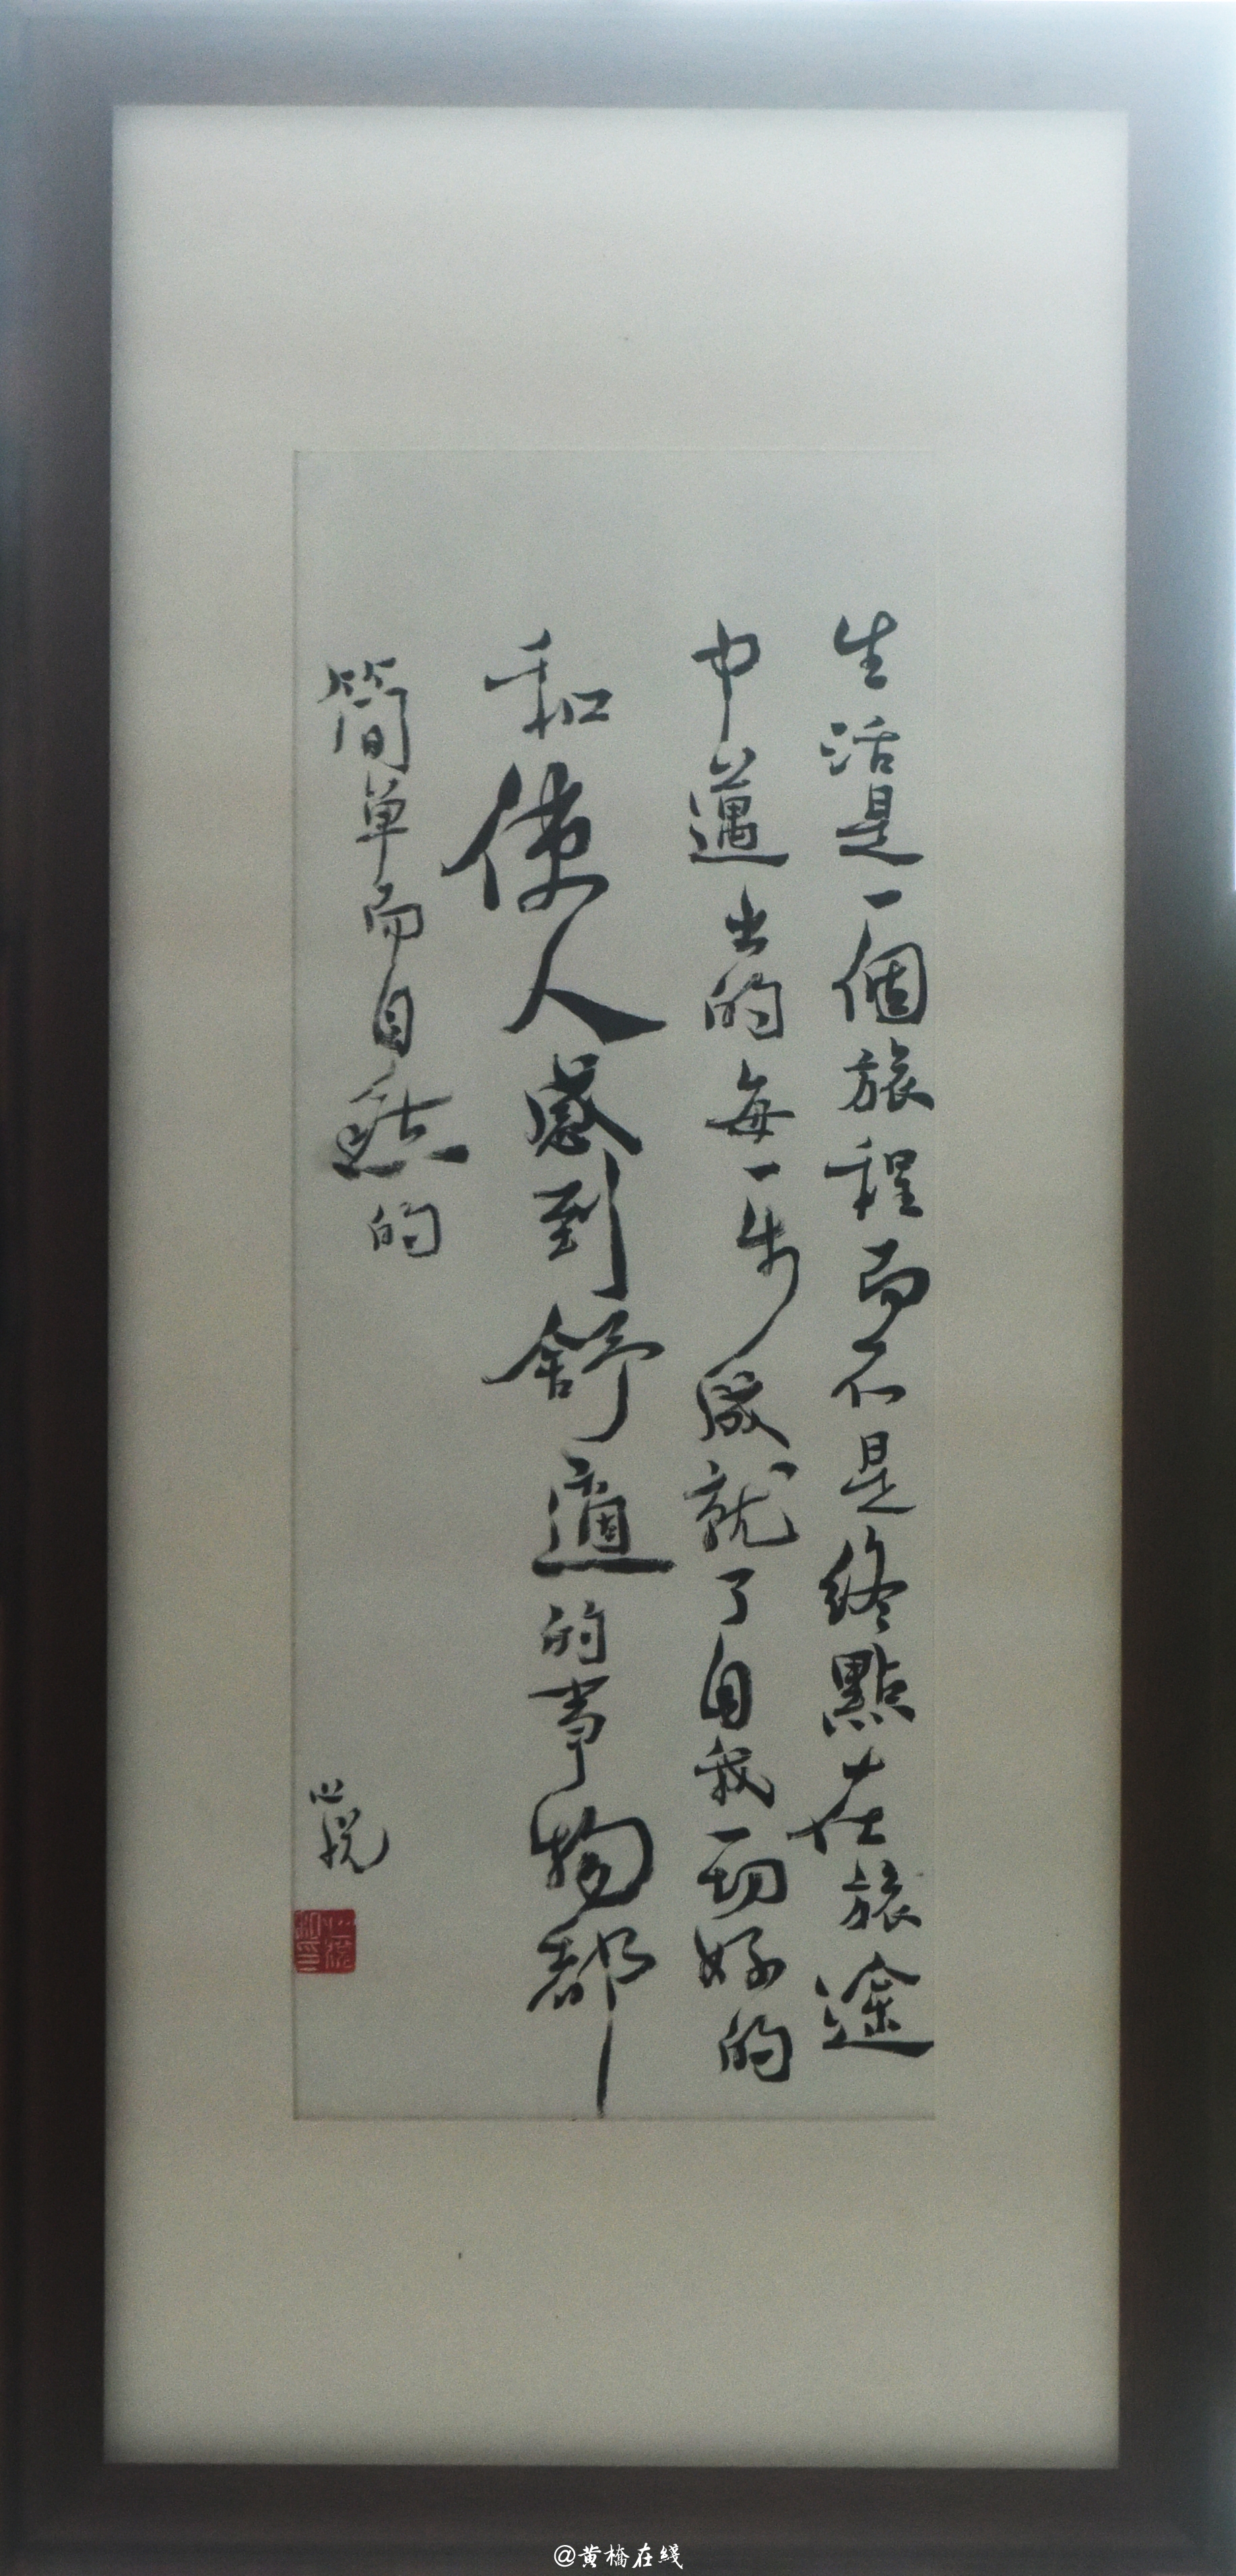 生活是一個旅程而不是終點在旅途
中邁出的每一步成就了自我一切好的
和使人感到舒適的事物都
簡单而自然的
心悦
@黄橋在綫